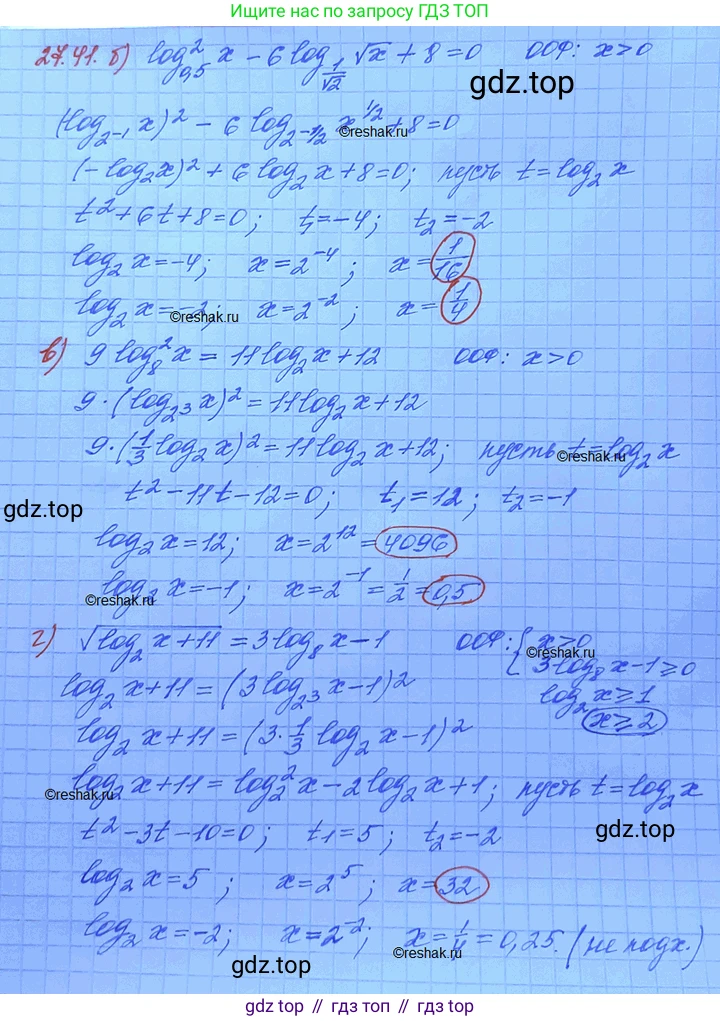 Ищите нас по запросу ГДЗ ТОП
27.41. б) log²₀,₅ x − 6 log_{1/√2} √x + 8 = 0 ООФ: x > 0
gdz.top
(log_{2⁻¹} x)² − 6 log_{2^{-1/2}} x^{1/2} + 8 = 0
©reshak.ru
(−log₂x)² + 6 log₂ x + 8 = 0; пусть t = log₂ x
t² + 6t + 8 = 0; t₁ = −4; t₂ = −2
log₂ x = −4; x = 2⁻⁴; x = 1/16
log₂ x = −2; x = 2⁻²; x = 1/4
©reshak.ru
в) 9 log₈² x = 11 log₂ x + 12 ООФ: x > 0
9·(log_{2³} x)² = 11 log₂ x + 12
9·(1/3 log₂ x)² = 11 log₂ x + 12; пусть t = log₂ x
©reshak.ru
t² − 11t − 12 = 0; t₁ = 12; t₂ = −1
gdz.top
log₂ x = 12; x = 2¹² = 4096
log₂ x = −1; x = 2⁻¹ = 1/2 = 0,5
©reshak.ru
г) √(log₂ x + 11) = 3 log₈ x − 1 ООФ: { x > 0
©reshak.ru
3 log₈ x − 1 ≥ 0
log₂ x + 11 = (3 log_{2³} x − 1)²
log₂ x ≥ 1
x ≥ 2
log₂ x + 11 = (3·1/3 log₂ x − 1)²
log₂ x + 11 = log₂² x − 2 log₂ x + 1; пусть t = log₂ x
©reshak.ru
t² − 3t − 10 = 0; t₁ = 5; t₂ = −2
gdz.top
log₂ x = 5; x = 2⁵; x = 32
log₂ x = −2; x = 2⁻²; x = 1/4 = 0,25. (не подх.)
©reshak.ru
gdz.top
gdz.top // гдз топ // gdz.top